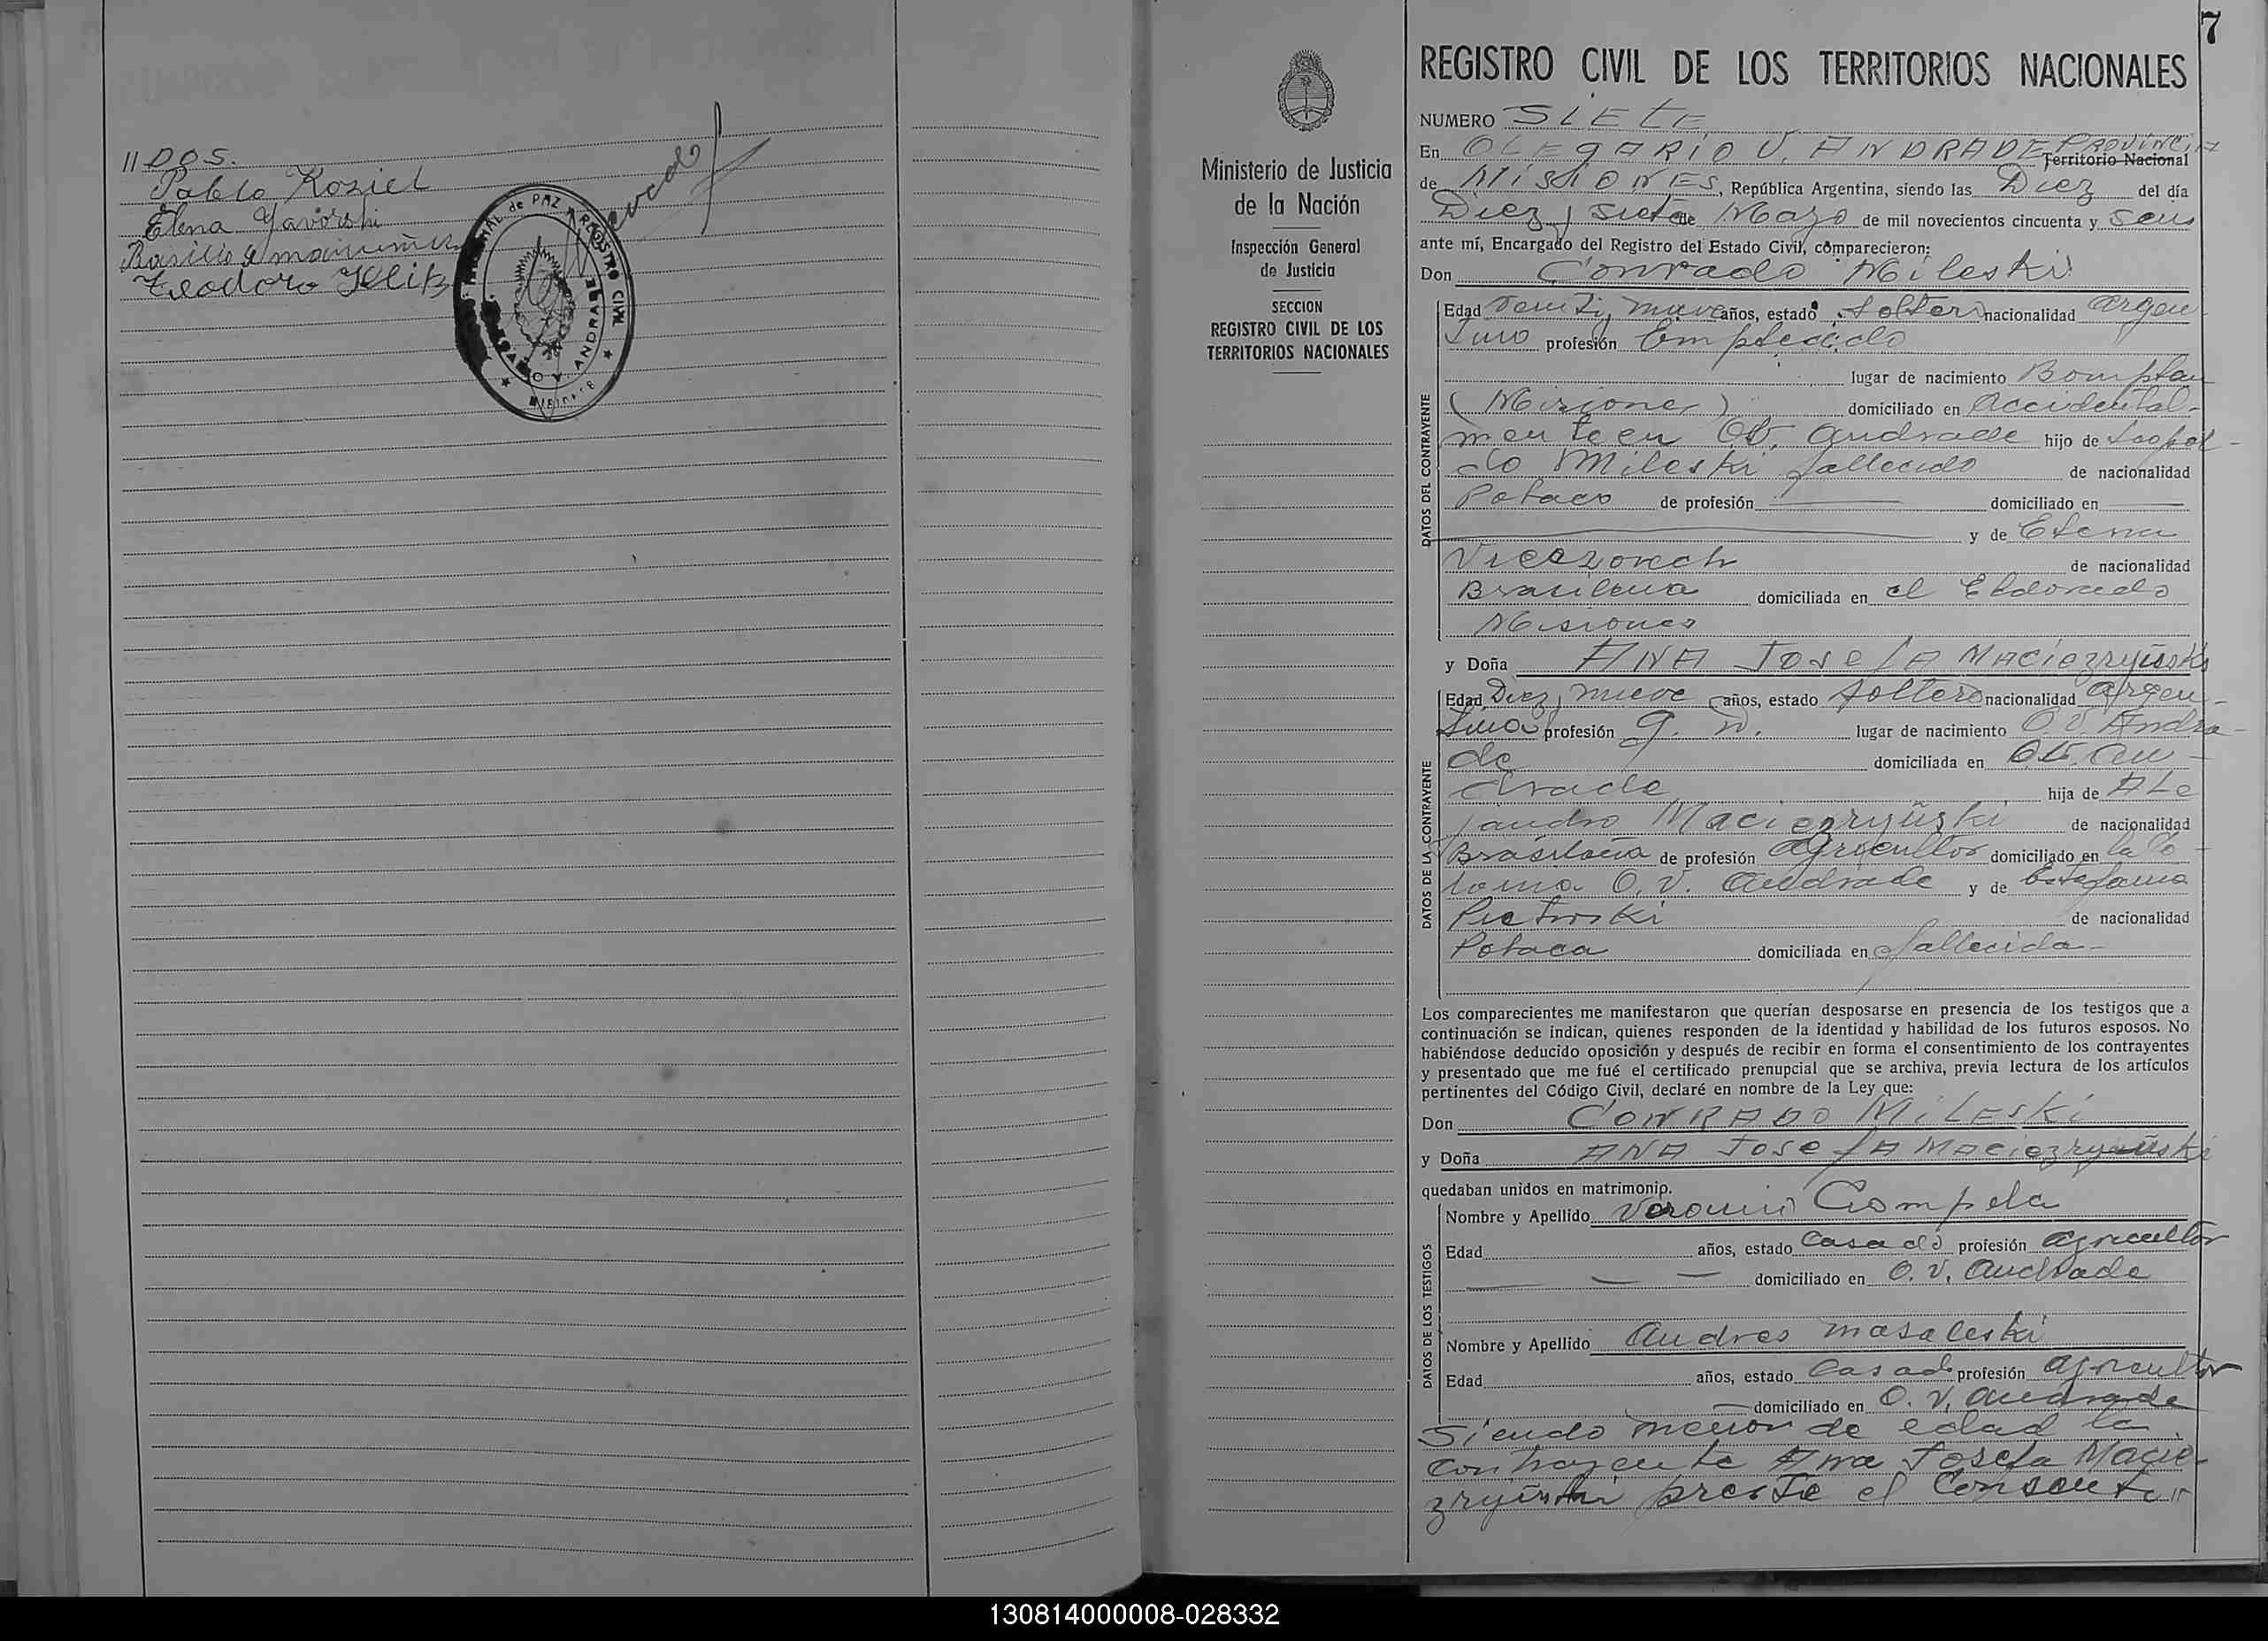 // DOS.
Pablo Koziel
Elena Yavorski
Basilio
Teodoro
DE PAZ Y REGISTRO CIVIL
O V. ANDRADE
7
REGISTRO CIVIL DE LOS TERRITORIOS NACIONALES
Ministerio de Justicia
de la Nación
Inspección General
de Justicia
SECCION
REGISTRO CIVIL DE LOS
TERRITORIOS NACIONALES
NUMERO SIETE
En OLEGARIO V. ANDRADE PROVINCIA Territorio Nacional
de MISIONES, República Argentina, siendo las Diez del día
Diez y siete de Mayo de mil novecientos cincuenta y seis
ante mí, Encargado del Registro del Estado Civil, comparecieron:
Don Conrado Mileski
DATOS DEL CONTRAYENTE
Edad años, estado soltero nacionalidad Argen
tino profesión Empleado
lugar de nacimiento Bomplan
(Misiones) domiciliado en Accidental-
mente en O.V. Andrade hijo de Leopol-
do Mileski fallecido de nacionalidad
Polaco de profesión domiciliado en
y de Elena
de nacionalidad
Brasilena domiciliada en el Eldorado
Misiones
y Doña ANA JOSEFA Maciezryñski
DATOS DE LA CONTRAYENTE
Edad Diez y nueve años, estado soltera nacionalidad Argen-
tina profesión lugar de nacimiento O.V. Andra-
de domiciliada en O.V. An-
drade hija de ALe
jandro Maciezryñski de nacionalidad
Brasileña de profesión agricultor domiciliado en la Co-
lonia O. V. Andrade y de Estefania
Pietroski de nacionalidad
Polaca domiciliada en fallecida-
Los comparecientes me manifestaron que querían desposarse en presencia de los testigos que a
continuación se indican, quienes responden de la identidad y habilidad de los futuros esposos. No
habiéndose deducido oposición y después de recibir en forma el consentimiento de los contrayentes
y presentado que me fué el certificado prenupcial que se archiva, previa lectura de los artículos
pertinentes del Código Civil, declaré en nombre de la Ley que:
Don CONRADO MiLESKi
y Doña ANA JOSEFA Maciezryñski
quedaban unidos en matrimonio.
DATOS DE LOS TESTIGOS
Nombre y Apellido
Edad años, estado Casado profesión agricultor
domiciliado en O. V. Andrade
Nombre y Apellido Andres Masaleski
Edad años, estado Casado profesión agricultor
domiciliado en O. V. Andrade
Siendo menor de edad la
contrayente Ana Josefa Macie-
zryñski presta el Consenti //
130814000008-028332